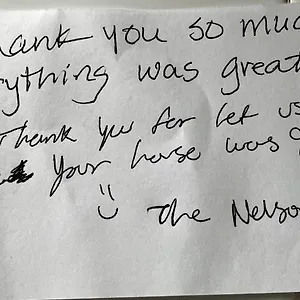 hank you so muc
rything was great
Thank you for let us
your house was g
:)
The Nelso